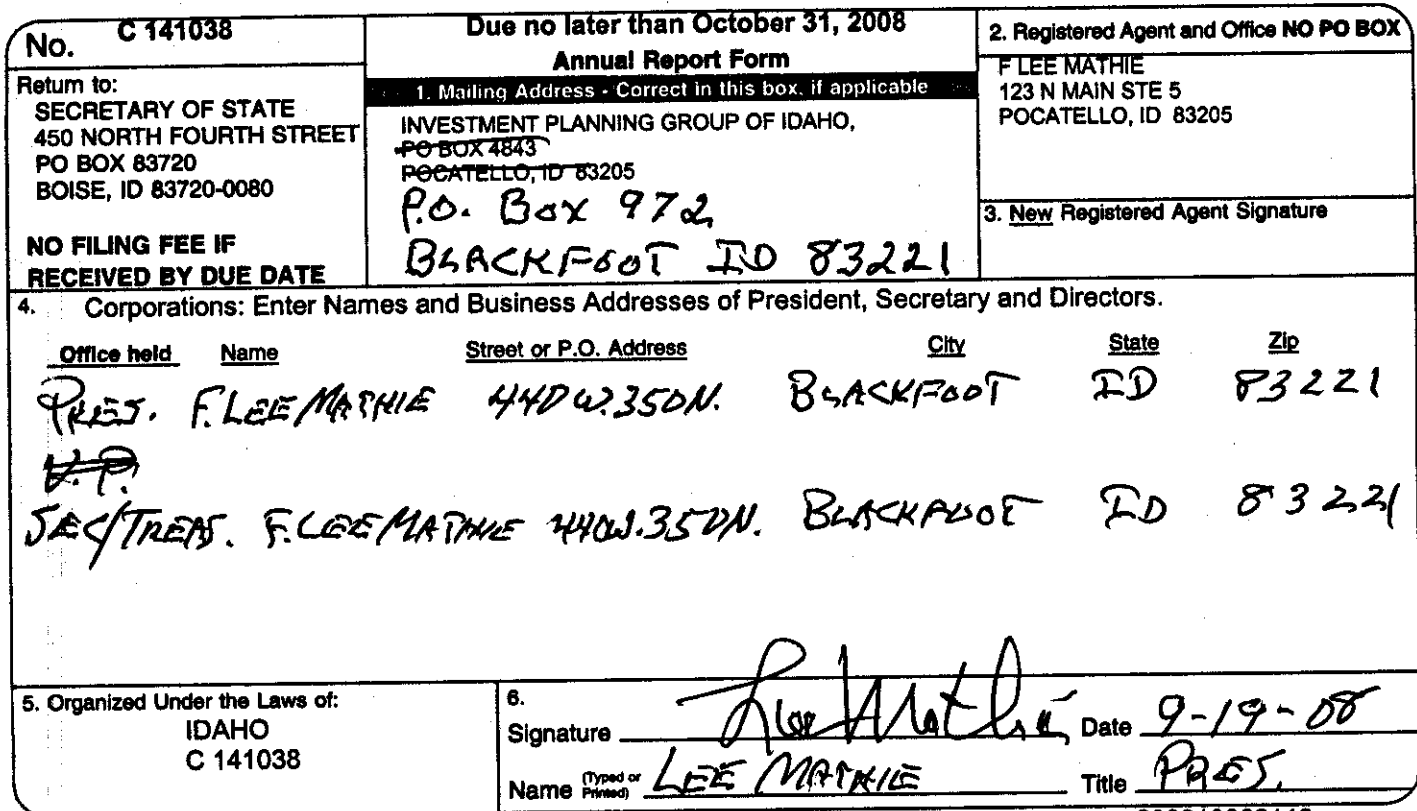 No. C 141038
Return to:
SECRETARY OF STATE
450 NORTH FOURTH STREET
PO BOX 83720
BOISE, ID 83720-0080
NO FILING FEE IF
RECEIVED BY DUE DATE
Due no later than October 31, 2008
Annual Report Form
1. Mailing Address - Correct in this box, if applicable
INVESTMENT PLANNING GROUP OF IDAHO,
PO BOX 4843
POCATELLO, ID 83205
P.O. Box 972
BLACKFOOT ID 83221
2. Registered Agent and Office NO PO BOX
F LEE MATHIE
123 N MAIN STE 5
POCATELLO, ID 83205
3. New Registered Agent Signature
4. Corporations: Enter Names and Business Addresses of President, Secretary and Directors.
Office held Name Street or P.O. Address City State Zip
PRES. F. LEE MATHIE 440 W. 350 N. BLACKFOOT ID 83221
V.P.
SEC/TREAS. F. LEE MATHIE 440 W. 350 N. BLACKFOOT ID 83221
5. Organized Under the Laws of:
IDAHO
C 141038
6.
Signature Lee Mathie Date 9-19-08
Name (Typed or Printed) LEE MATHIE Title PRES.